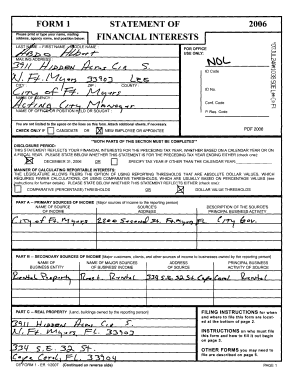 FORM 1 STATEMENT OF 2006
FINANCIAL INTERESTS
Please print or type your name, mailing address, agency name, and position below:
LAST NAME -- FIRST NAME -- MIDDLE NAME
FOR OFFICE USE ONLY:
MAILING ADDRESS
3911 Hidden Acres Cir S.
NOL
N. Ft. Myers 33903 Lee
ID Code
CITY: ZIP: COUNTY:
City of Ft. Myers
ID No.
NAME OF AGENCY
Acting City Manager
Conf. Code
NAME OF OFFICE OR POSITION HELD OR SOUGHT
P. Req. Code
You are not limited to the space on the lines on this form. Attach additional sheets, if necessary.
CHECK ONLY IF CANDIDATE OR NEW EMPLOYEE OR APPOINTEE
PDF 2006
**BOTH PARTS OF THIS SECTION MUST BE COMPLETED**
DISCLOSURE PERIOD:
THIS STATEMENT REFLECTS YOUR FINANCIAL INTERESTS FOR THE PRECEDING TAX YEAR, WHETHER BASED ON A CALENDAR YEAR OR ON A FISCAL YEAR. PLEASE STATE BELOW WHETHER THIS STATEMENT IS FOR THE PRECEDING TAX YEAR ENDING EITHER (check one):
DECEMBER 31, 2006 OR SPECIFY TAX YEAR IF OTHER THAN THE CALENDAR YEAR:
MANNER OF CALCULATING REPORTABLE INTERESTS:
THE LEGISLATURE ALLOWS FILERS THE OPTION OF USING REPORTING THRESHOLDS THAT ARE ABSOLUTE DOLLAR VALUES, WHICH REQUIRES FEWER CALCULATIONS, OR USING COMPARATIVE THRESHOLDS, WHICH ARE USUALLY BASED ON PERCENTAGE VALUES (see instructions for further details). PLEASE STATE BELOW WHETHER THIS STATEMENT REFLECTS EITHER (check one):
COMPARATIVE (PERCENTAGE) THRESHOLDS OR DOLLAR VALUE THRESHOLDS
PART A -- PRIMARY SOURCES OF INCOME [Major sources of income to the reporting person]
NAME OF SOURCE OF INCOME SOURCE'S ADDRESS DESCRIPTION OF THE SOURCE'S PRINCIPAL BUSINESS ACTIVITY
City of Ft. Myers 2200 Second St. Ft Myers FL City Gov.
PART B -- SECONDARY SOURCES OF INCOME [Major customers, clients, and other sources of income to businesses owned by the reporting person]
NAME OF BUSINESS ENTITY NAME OF MAJOR SOURCES OF BUSINESS' INCOME ADDRESS OF SOURCE PRINCIPAL BUSINESS ACTIVITY OF SOURCE
Rental Property Rental 334 S.E. 32 St Cape Coral Rental
PART C -- REAL PROPERTY [Land, buildings owned by the reporting person]
3911 Hidden Acres Cir S.
N. Ft. Myers FL. 33903
334 S.E. 32 St.
Cape Coral, FL. 33904
FILING INSTRUCTIONS for when and where to file this form are located at the bottom of page 2.
INSTRUCTIONS on who must file this form and how to fill it out begin on page 3.
OTHER FORMS you may need to file are described on page 6.
CE FORM 1 - Eff. 1/2007 (Continued on reverse side) PAGE 1